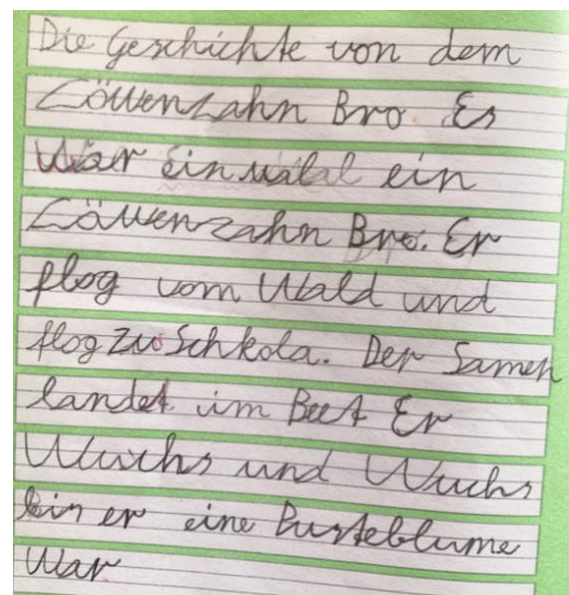 Die Geschichte von dem
Löwenzahn Bro. Es
War einmalal ein
Löwenzahn Bro. Er
flog vom Wald und
flog zu Schkola. Der Samen
landet im Beet Er
Wuchs und Wuchs
bis er eine Pusteblume
War